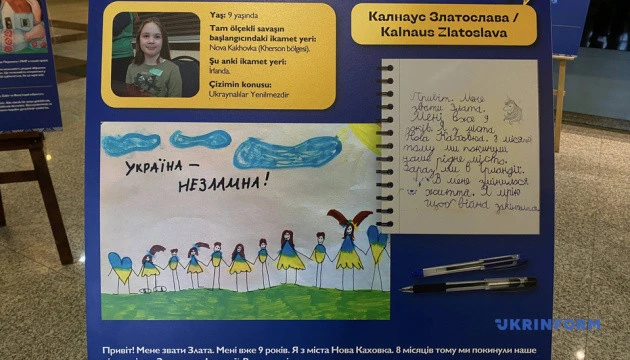 Yaş: 9 yaşında
Tam ölçekli savaşın
başlangıcındaki ikamet yeri:
Nova Kakhovka (Kherson bölgesi).
Şu anki ikamet yeri:
İrlanda.
Çizimin konusu:
Ukraynalılar Yenilmezdir
Калнаус Златослава /
Kalnaus Zlatoslava
УКРАЇНА –
НЕЗЛАМНА!
Привіт. Мене
звати Злата.
Мені вже 9
років. Я з міста
Нова Каховка. 8 місяців
тому ми покинули
наше рідне місто.
Зараз ми в Ірландії.
В мене змінилося
життя. Я мрію
щоб війна закінчилася
UKRINFORM
Привіт! Мене звати Злата. Мені вже 9 років. Я з міста Нова Каховка. 8 місяців тому ми покинули наше